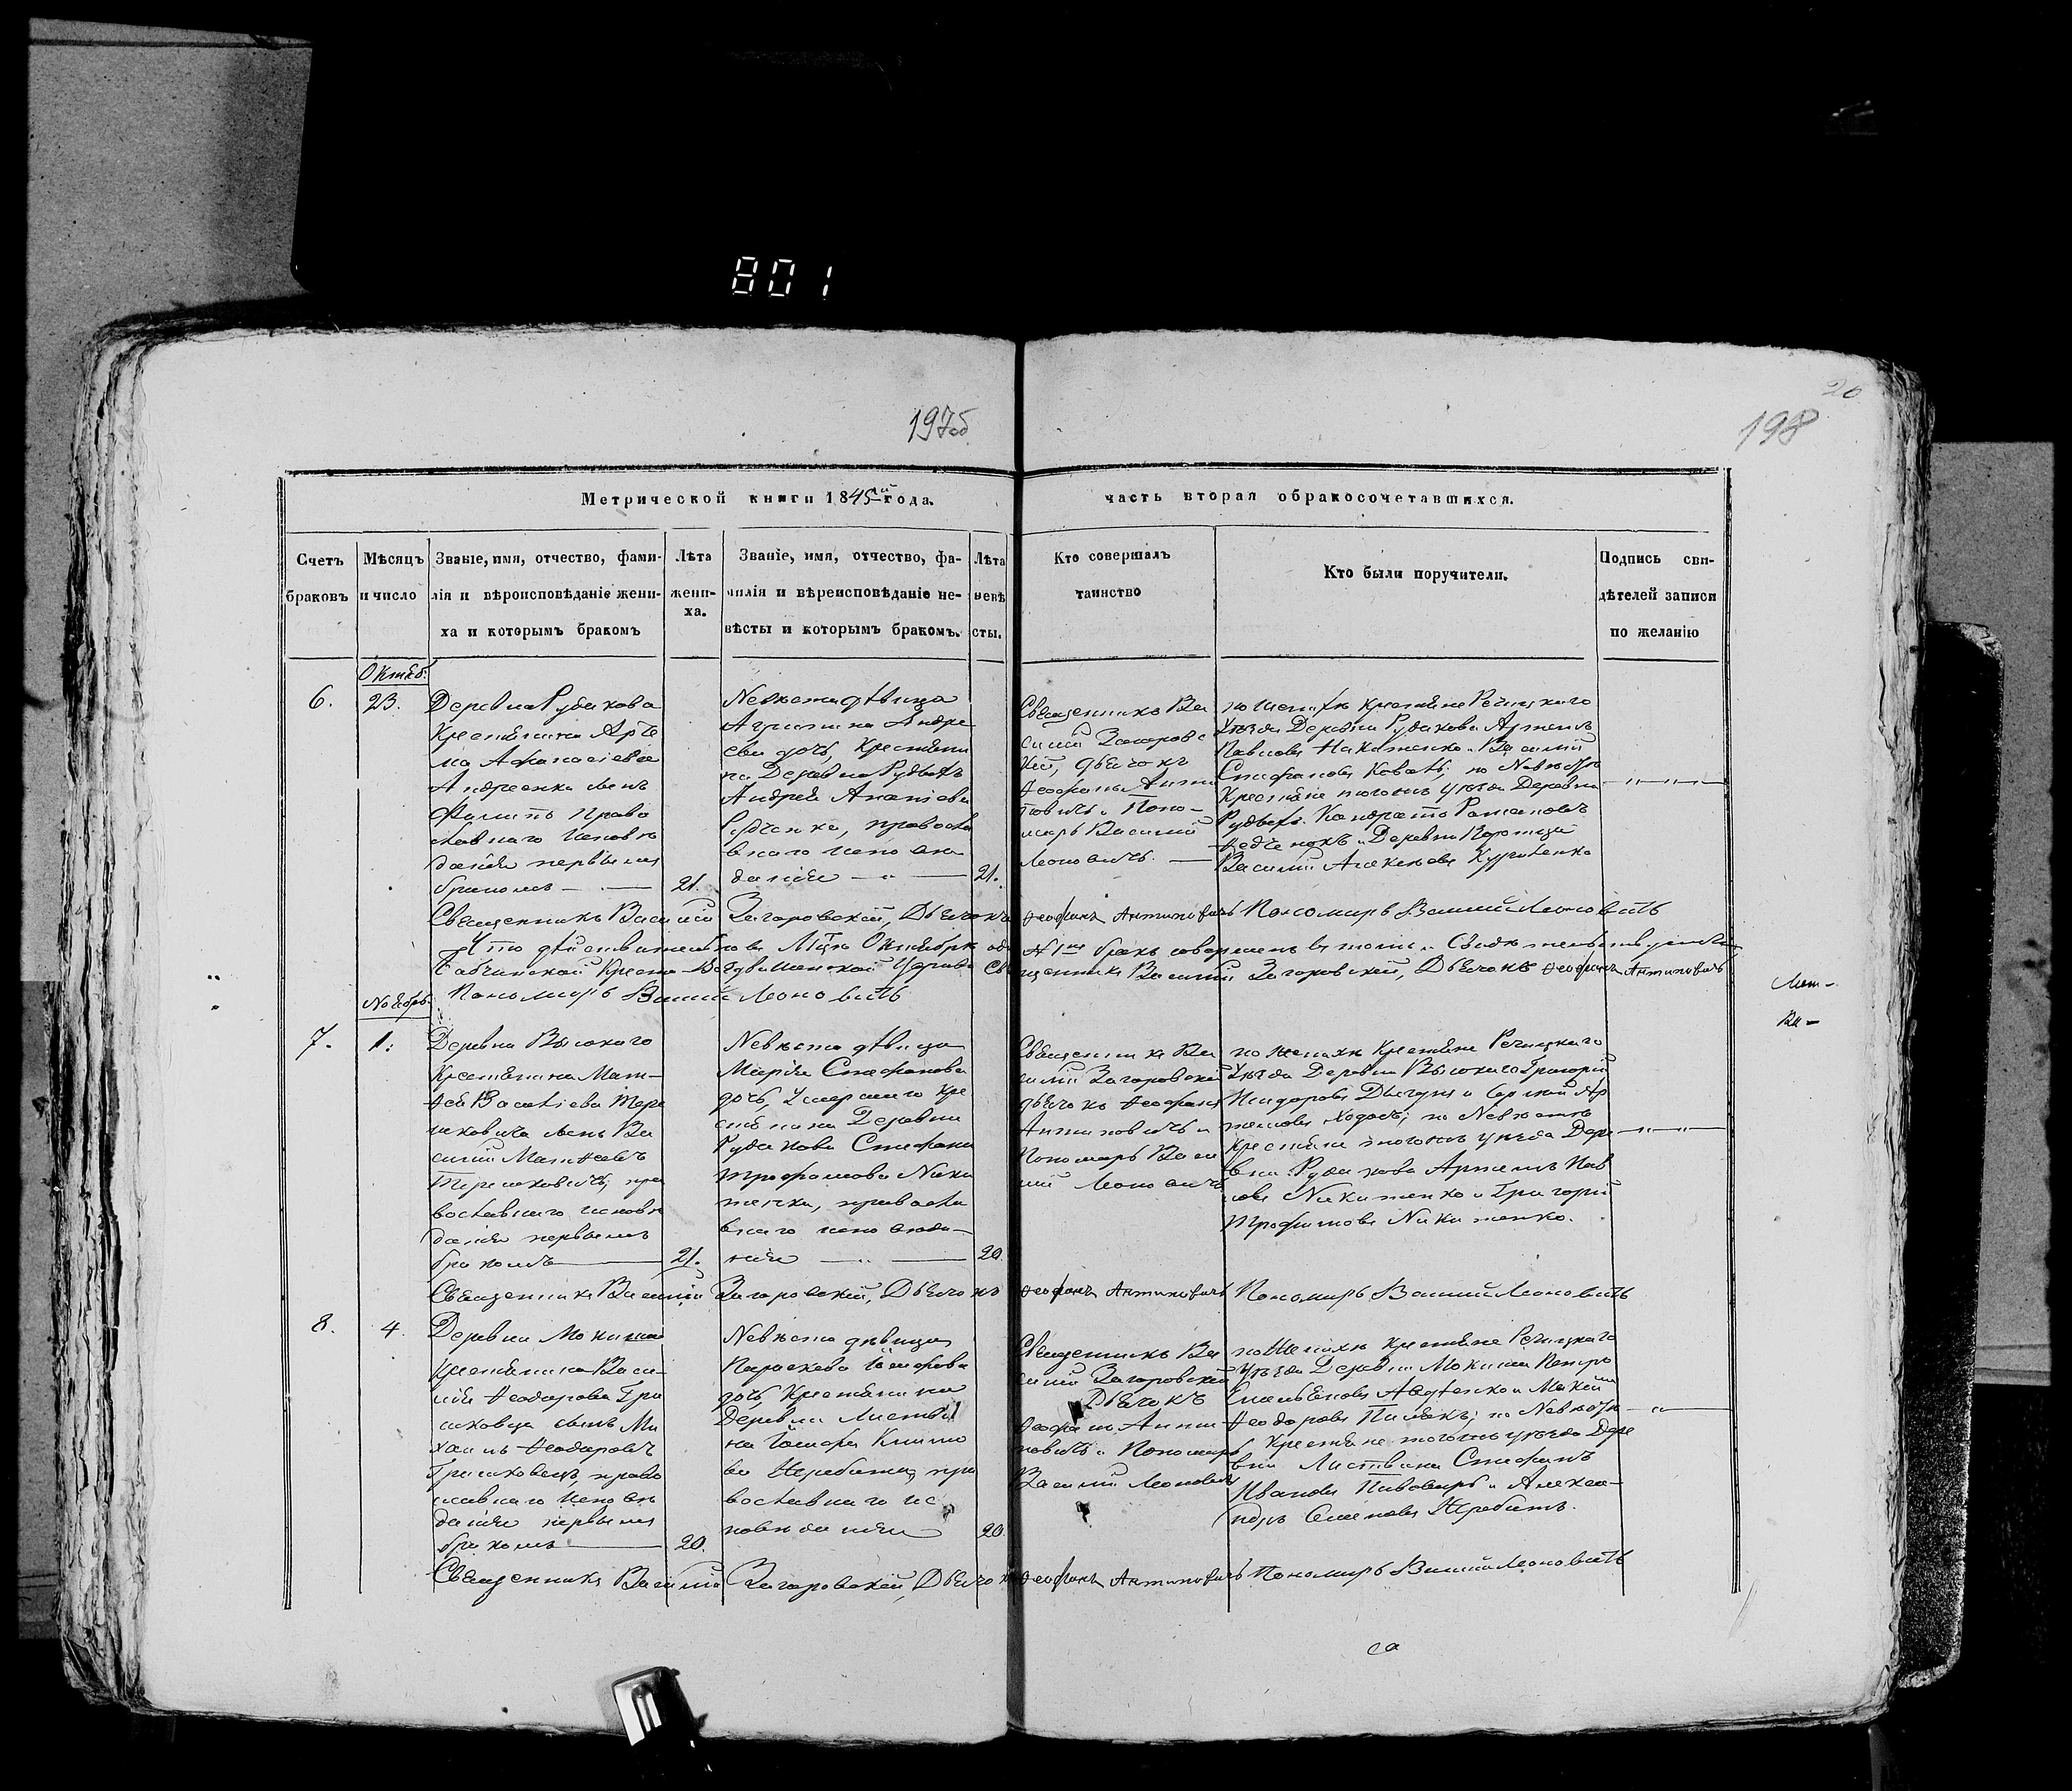 801
197об
20
198
Метрической книги 1845го года.
часть вторая о бракосочетавшихся.
Счетъ браковъ
Мѣсяцъ и число
Званіе, имя, отчество, фами-
лія и вѣроисповѣданіе жени-
ха и которымъ бракомъ
Лѣта
жени-
ха.
Званіе, имя, отчество, фа-
милія и вѣроисповѣданіе не-
вѣсты и которымъ бракомъ.
Лѣта
невѣ
сты.
Кто совершалъ
таинство
Кто были поручители.
Подпись сви-
дѣтелей записи
по желанію
Октяб:
6.
23.
Деревни Рудакова
Крестьянина Арте
ма Афанасіева
Андреенка сынъ
Филипъ право
славнаго исповѣ
данія первымъ
бракомъ
21.
Невѣста дѣвица
Агрипина Андре
ева дочь, Крестьяни
на Деревни
Андрея Ананіева
Рудченка, правосла
внаго исповѣ
данія
21.
Священникъ Ва
силій Загоровс
кій, дьячокъ
Ѳеофанъ Анти
повичъ и Поно-
марь Василій
Леоновичъ.
по Женихѣ крестьяне Рѣчицкаго
Уѣзда Деревни Рудакова Артемъ
Павловъ Никитенко и Василій
Стефановъ Коваль; по Невѣстѣ
Крестьяне тогожъ уѣзда Деревни
Кондратъ Романовъ
и Деревни
Василій Алексѣевъ
Священникъ Василій Загоровскій, Дьячокъ Ѳеофанъ Антиповичъ Пономарь Василій Леоновичъ
Что дѣйствительно въ Мцѣ Октябрѣ
бракъ совершенъ въ томъ и свидѣтельствуемъ
Бабчинской Кресто-Воздвиженской Церкви Священникъ Василій Загоровскій, Дьячокъ Ѳеофанъ Антиповичъ
Пономарь Василій Леоновичъ
Ноябрь
7.
1.
Деревни Высокаго
Крестьянина Мат-
ѳея Василіева Тере
шковича сынъ Ва
силій Матѳеевъ
Терешковичъ, пра
вославнаго исповѣ
данія первымъ
бракомъ
21.
Невѣста дѣвица
Марія Стефанова
дочь, Умершаго Кре
стьянина Деревни
Рудакова Стефана
Трофимова Ники
тенка, правосла
внаго исповѣда-
нія
20.
Священникъ Ва
силій Загоровскій
дьячокъ Ѳеофанъ
Антиповичъ и
Пономарь Васи
лій Леоновичъ
по женихѣ Крестьяне Рѣчицкаго
Уѣзда Деревни Высокаго Григорій
Исидоровъ Дигунъ и Сергѣй Ар
темовъ Ходосъ; по Невѣстѣ
Крестьяне тогожъ уѣзда Дере
вни Рудакова Артемъ Пав
ловъ Никитенко и Григорій
Трофимовъ Никитенко.
Священникъ Василій Загоровскій, Дьячокъ Ѳеофанъ Антиповичъ Пономарь Василій Леоновичъ
8.
4.
Деревни Мокиша
Крестьянина Васи-
лія Ѳеодорова Гри
шковца сынъ Ми
хаилъ Ѳеодоровъ
Гришковецъ, право
славнаго исповѣ
данія первымъ
бракомъ
20.
Невѣста дѣвица
Параскева Іосифова
дочь, Крестьянина
Деревни Листви
на Іосифа Климо
ва Жеребита, пра
вославнаго ис
повѣданія
20.
Священникъ Ва
силій Загоровскій
Дьячокъ
Ѳеофанъ Анти
повичъ и Пономарь
Василій Леоновичъ
по Женихѣ крестьяне Рѣчицкаго
Уѣзда Деревни Мокиша Петръ
Емельяновъ Авдѣенко и Мокій
Ѳеодоровъ; по Невѣстѣ
Крестьяне тогожъ уѣзда Дере
вни Листвина Стефанъ
Ивановъ Пивоваръ и Алекса-
ндръ Семеновъ Жребитъ.
Священникъ Василій Загоровскій, Дьячокъ Ѳеофанъ Антиповичъ Пономарь Василій Леоновичъ